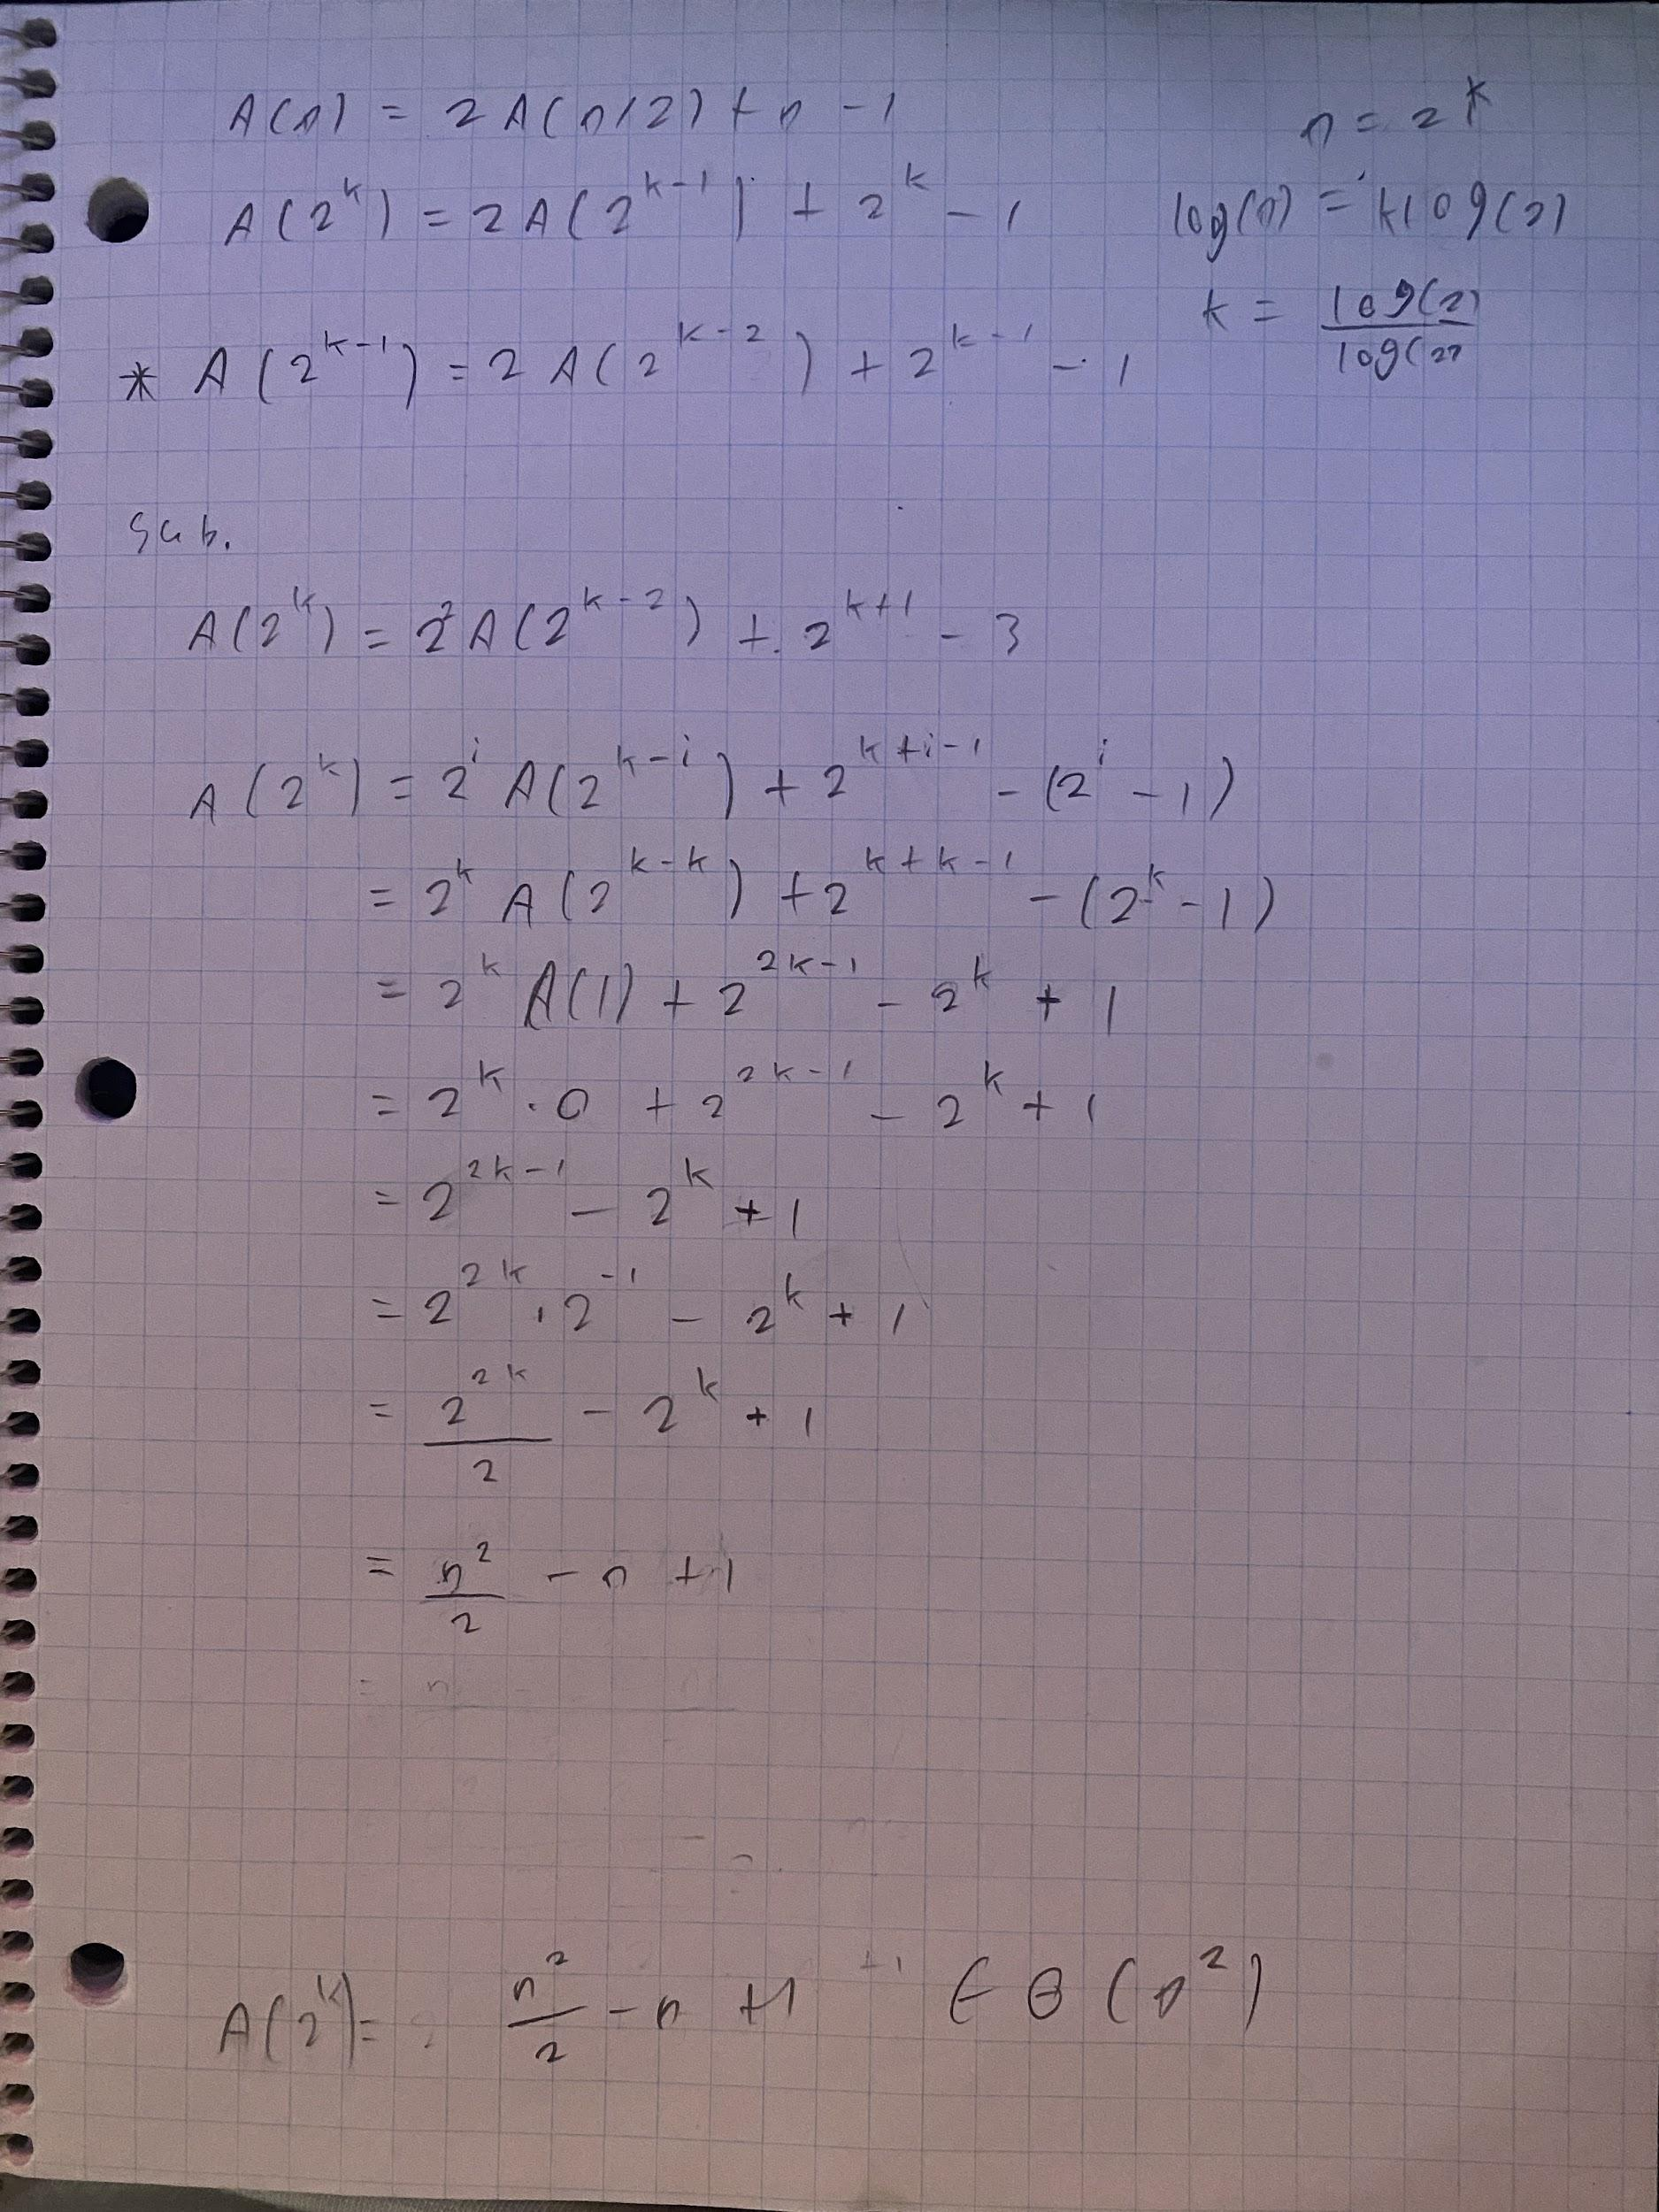 A(n) = 2A(n/2) + n - 1
n = 2^k
A(2^k) = 2A(2^{k-1}) + 2^k - 1
log(n) = klog(2)
k = log(2)/log(2)
* A(2^{k-1}) = 2A(2^{k-2}) + 2^{k-1} - 1
Sub.
A(2^k) = 2^2A(2^{k-2}) + 2^{k+1} - 3
A(2^k) = 2^i A(2^{k-i}) + 2^{k+i-1} - (2^i - 1)
= 2^k A(2^{k-k}) + 2^{k+k-1} - (2^k - 1)
= 2^k A(1) + 2^{2k-1} - 2^k + 1
= 2^k · 0 + 2^{2k-1} - 2^k + 1
= 2^{2k-1} - 2^k + 1
= 2^{2k} · 2^{-1} - 2^k + 1
= 2^{2k}/2 - 2^k + 1
= n^2/2 - n + 1
A(2^k) = n^2/2 - n + 1 ∈ Θ(n^2)